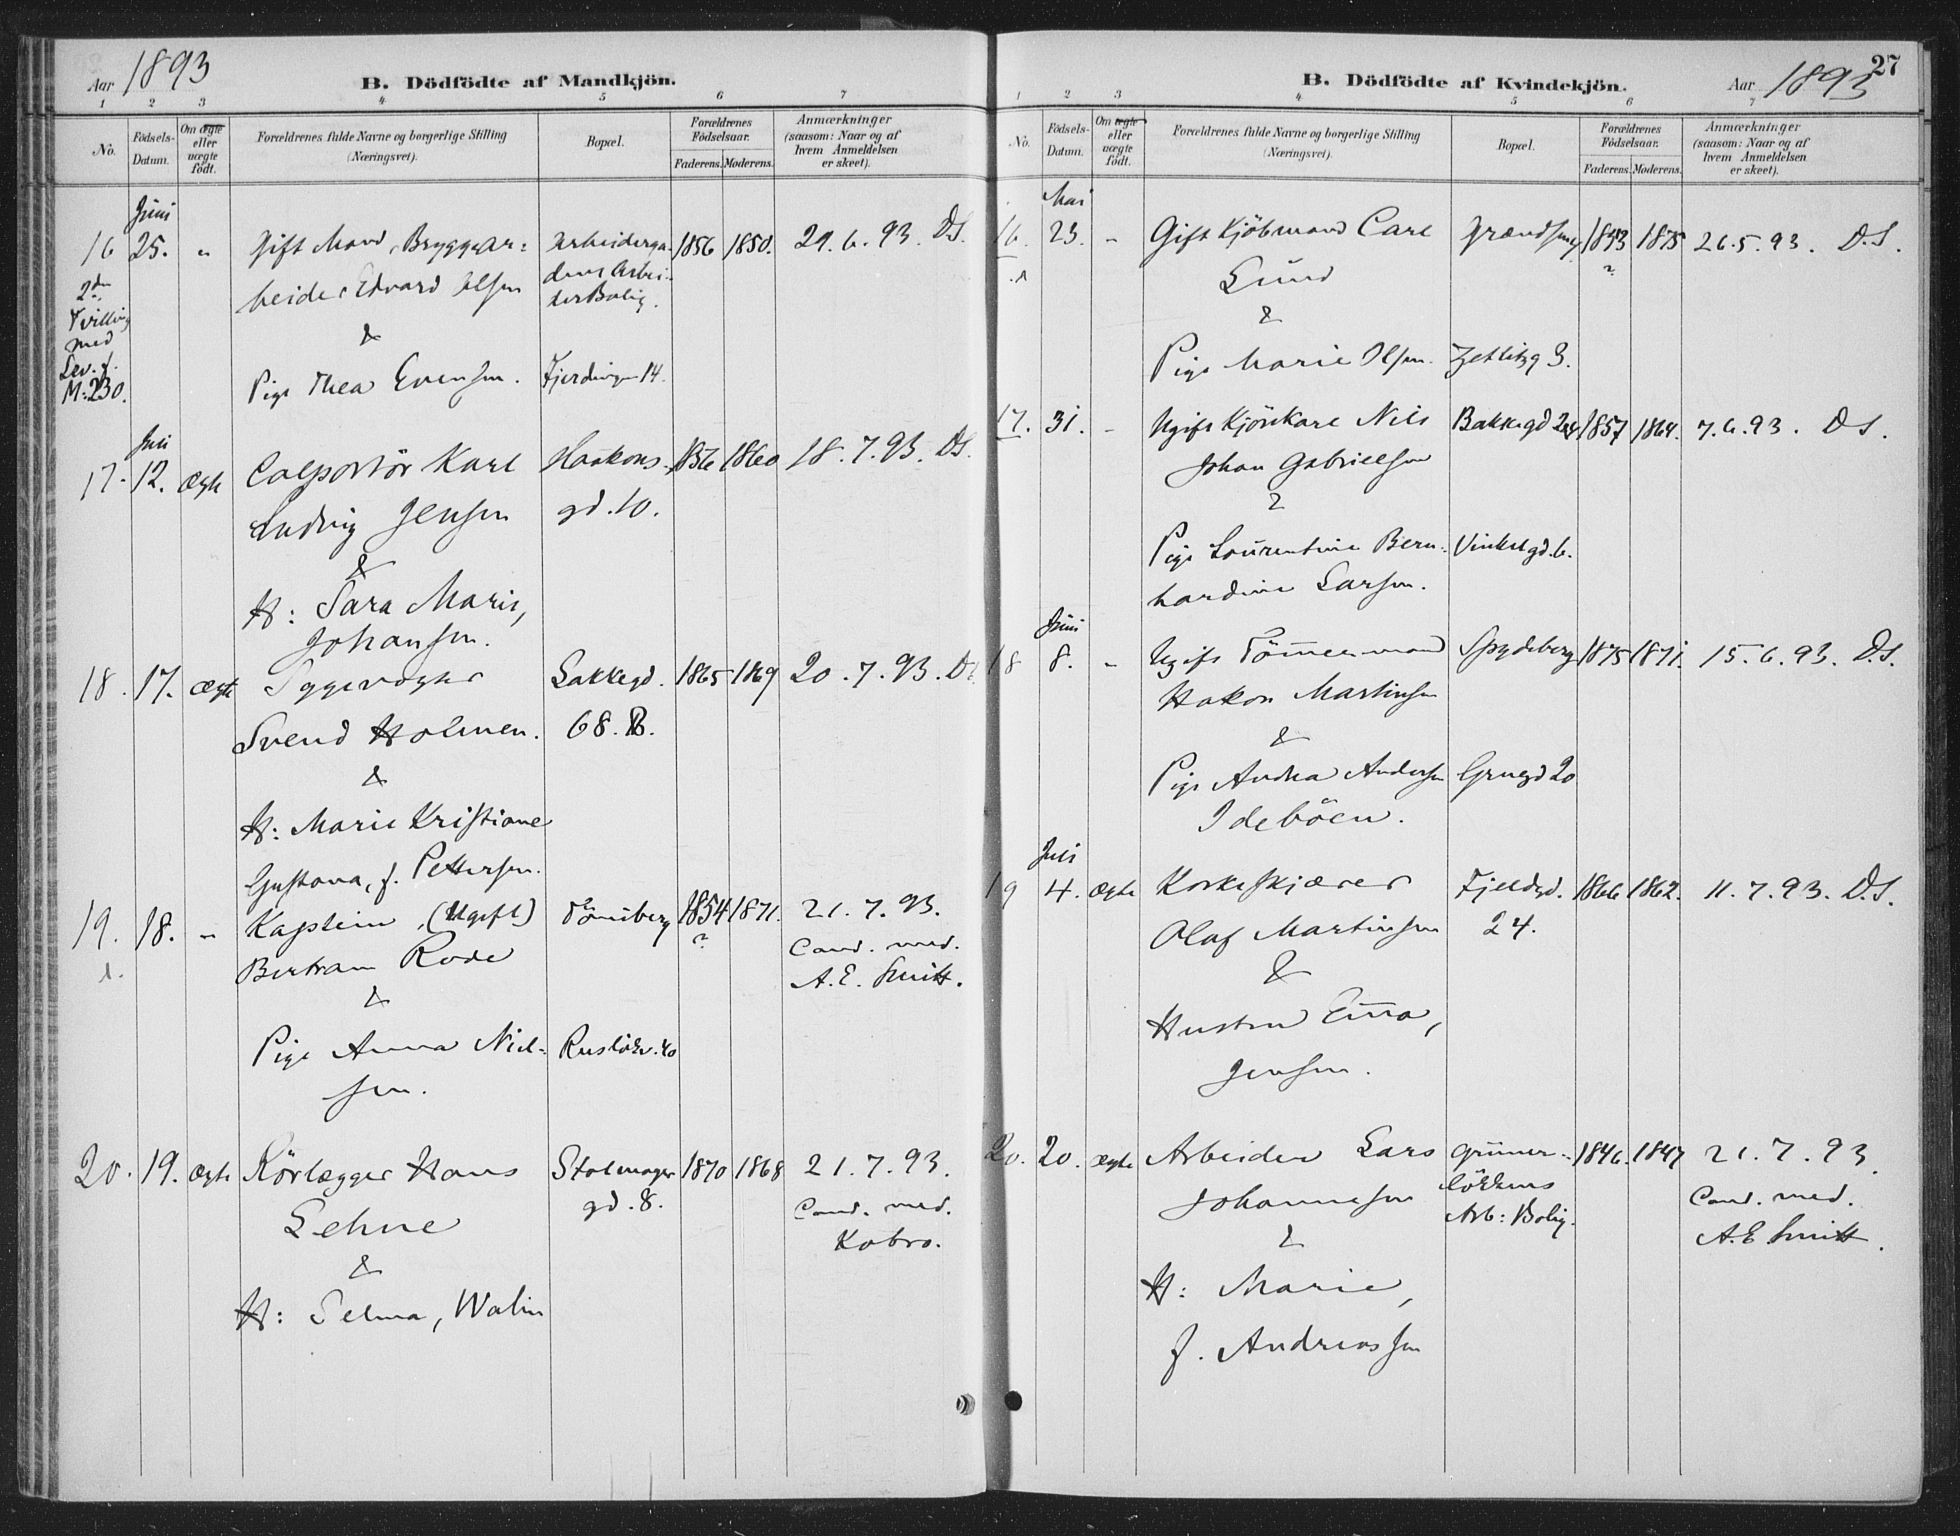 Aar 1893
B. Dödfödte af Mandkjön.
1 2 3 4 5 6 7
No.
Födsels-
Datum.
Om ægte
eller
uægte
födt.
Forældrenes fulde Navne og borgerlige Stilling
(Næringsvei).
Bopæl.
Forældrenes
Födselsaar.
Faderens. Moderens.
Anmærkninger
(saasom: Naar og af
hvem Anmeldelsen
er skeet).
Juni
16 25. " Gift Mand, Bryggeriar- 1856 1850. 29.6.93. D.S.
beider Edvard Olsen
Bolig.
2den
Tvilling
med
Lev. f.
M: 230.
&
Pige Thea Evensen. Fjerdingen 14.
Juli
17. 12. ægte Colportör Karl Haakons- 1856 1860 18.7.93. D.S.
Ludvig Jensen gd. 10.
&
H: Sara Marie,
Johansen.
18. 17. ægte Lakkegd. 1865 1869 20.7.93. D.S.
Svend Holmen. 68. B.
&
H: Marie Kristiane
Gustava, f. Pettersen.
19. 18. " Kaptein (Ugift) Tönsberg 1854 1871. 21.7.93.
? Cand. med.
Bertram Rode A.E. Smitt.
&
Pige Anna Niel- Ruslökv. 40
sen.
20. 19. ægte Rörlægger Hans Stolmager 1870 1868 21.7.93.
Lehne gd. 8. Cand. med.
Kobro.
&
H: Selma, Walin
27
B. Dödfödte af Kvindekjön.
Aar 1893
1 2 3 4 5 6 7
No.
Födsels-
Datum.
Om ægte
eller
uægte
födt.
Forældrenes fulde Navne og borgerlige Stilling
(Næringsvei).
Bopæl.
Forældrenes
Födselsaar.
Faderens. Moderens.
Anmærkninger
(saasom: Naar og af
hvem Anmeldelsen
er skeet).
Mai
16. 23. " Gift Kjöbmand Carl 1853 1875 26.5.93. D.S.
Lund ?
&
Pige Marie Olsen. Zetlitzg 3.
17. 31. " Ugift Kjörekarl Nils Bakkegd 1857 1864. 7.6.93. D.S.
Johan Gabrielsen
&
Pige Laurentine Bern- Vinkelgd. 6.
hardine Larsen.
Juni
18 8. " Ugift Tömmermand Spydeberg 1875 1871. 15.6.93. D.S.
Hakon Martinsen
&
Pige Andrea Andersen Grugd 20
Ideböen.
Juli
19 4. ægte Korkeskjærer Fjeldgd. 1866 1862. 11.7.93. D.S.
Olaf Martinsen 24.
&
Hustru Ema,
Jensen.
20. 20. ægte Arbeider Lars Grüner- 1846. 1847 21.7.93.
Johannesen lökkens Cand. med.
Arb: Bolig. A.E. Smitt.
&
H: Marie,
f. Andreassen